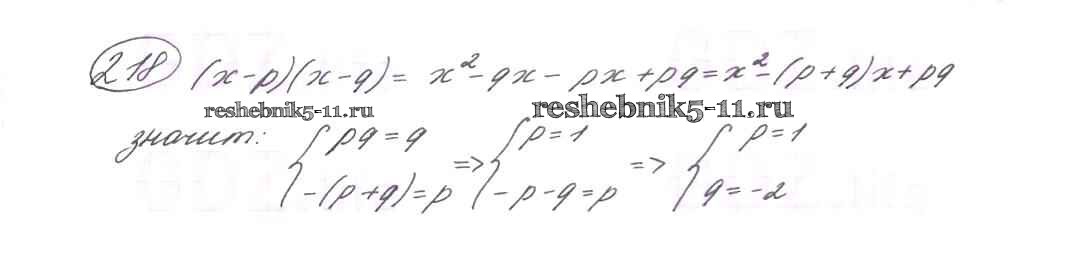 218 (x-p)(x-q) = x²-qx-px+pq=x²-(p+q)x+pq
reshebnik5-11.ru reshebnik5-11.ru
значит: { pq=q => { p=1 => { p=1
-(p+q)=p -p-q=p q=-2